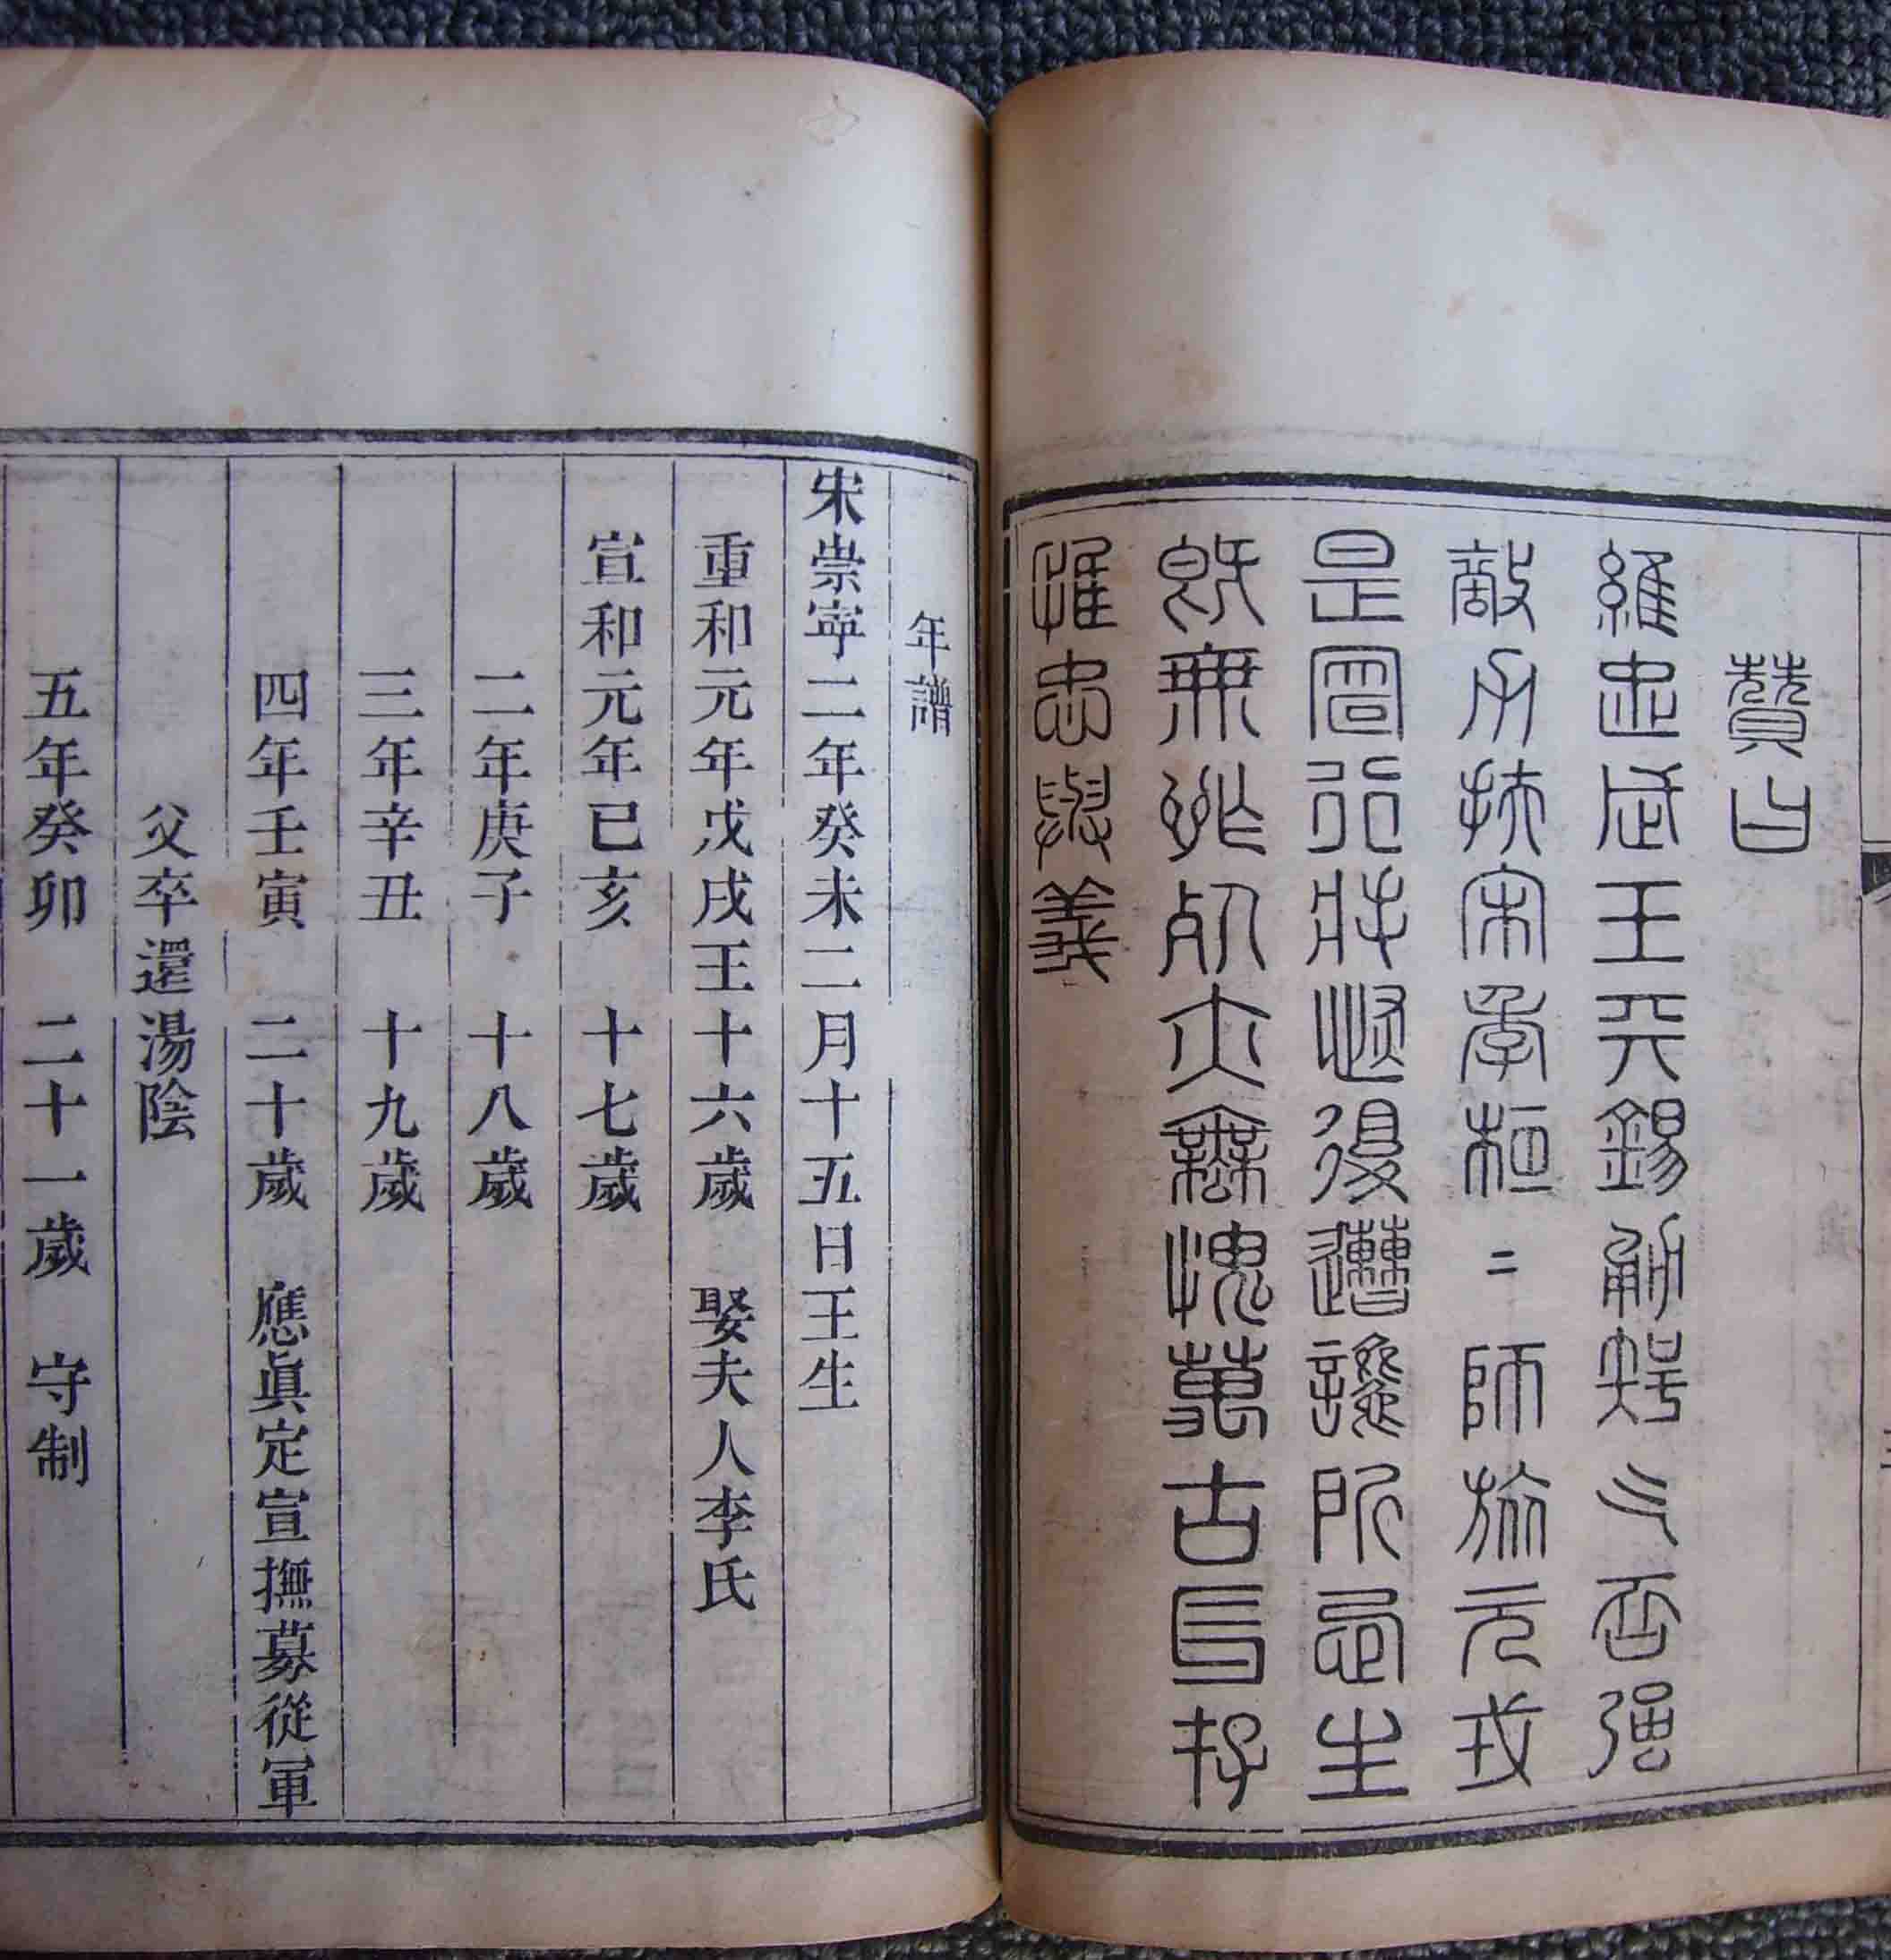 贊曰
維忠武王天錫勇智气吞强
敵力扶宋季桓二師旅元戎
是行將恢復遭讒所忌生
既無死亦無愧萬古長存
惟忠與義
年譜
宋崇寧二年癸未二月十五日王生
重和元年戊戌王十六歲　娶夫人李氏
宣和元年已亥　十七歲
二年庚子　十八歲
三年辛丑　十九歲
四年壬寅　二十歲　應眞定宣撫募從軍
父卒還湯陰
五年癸卯　二十一歲　守制